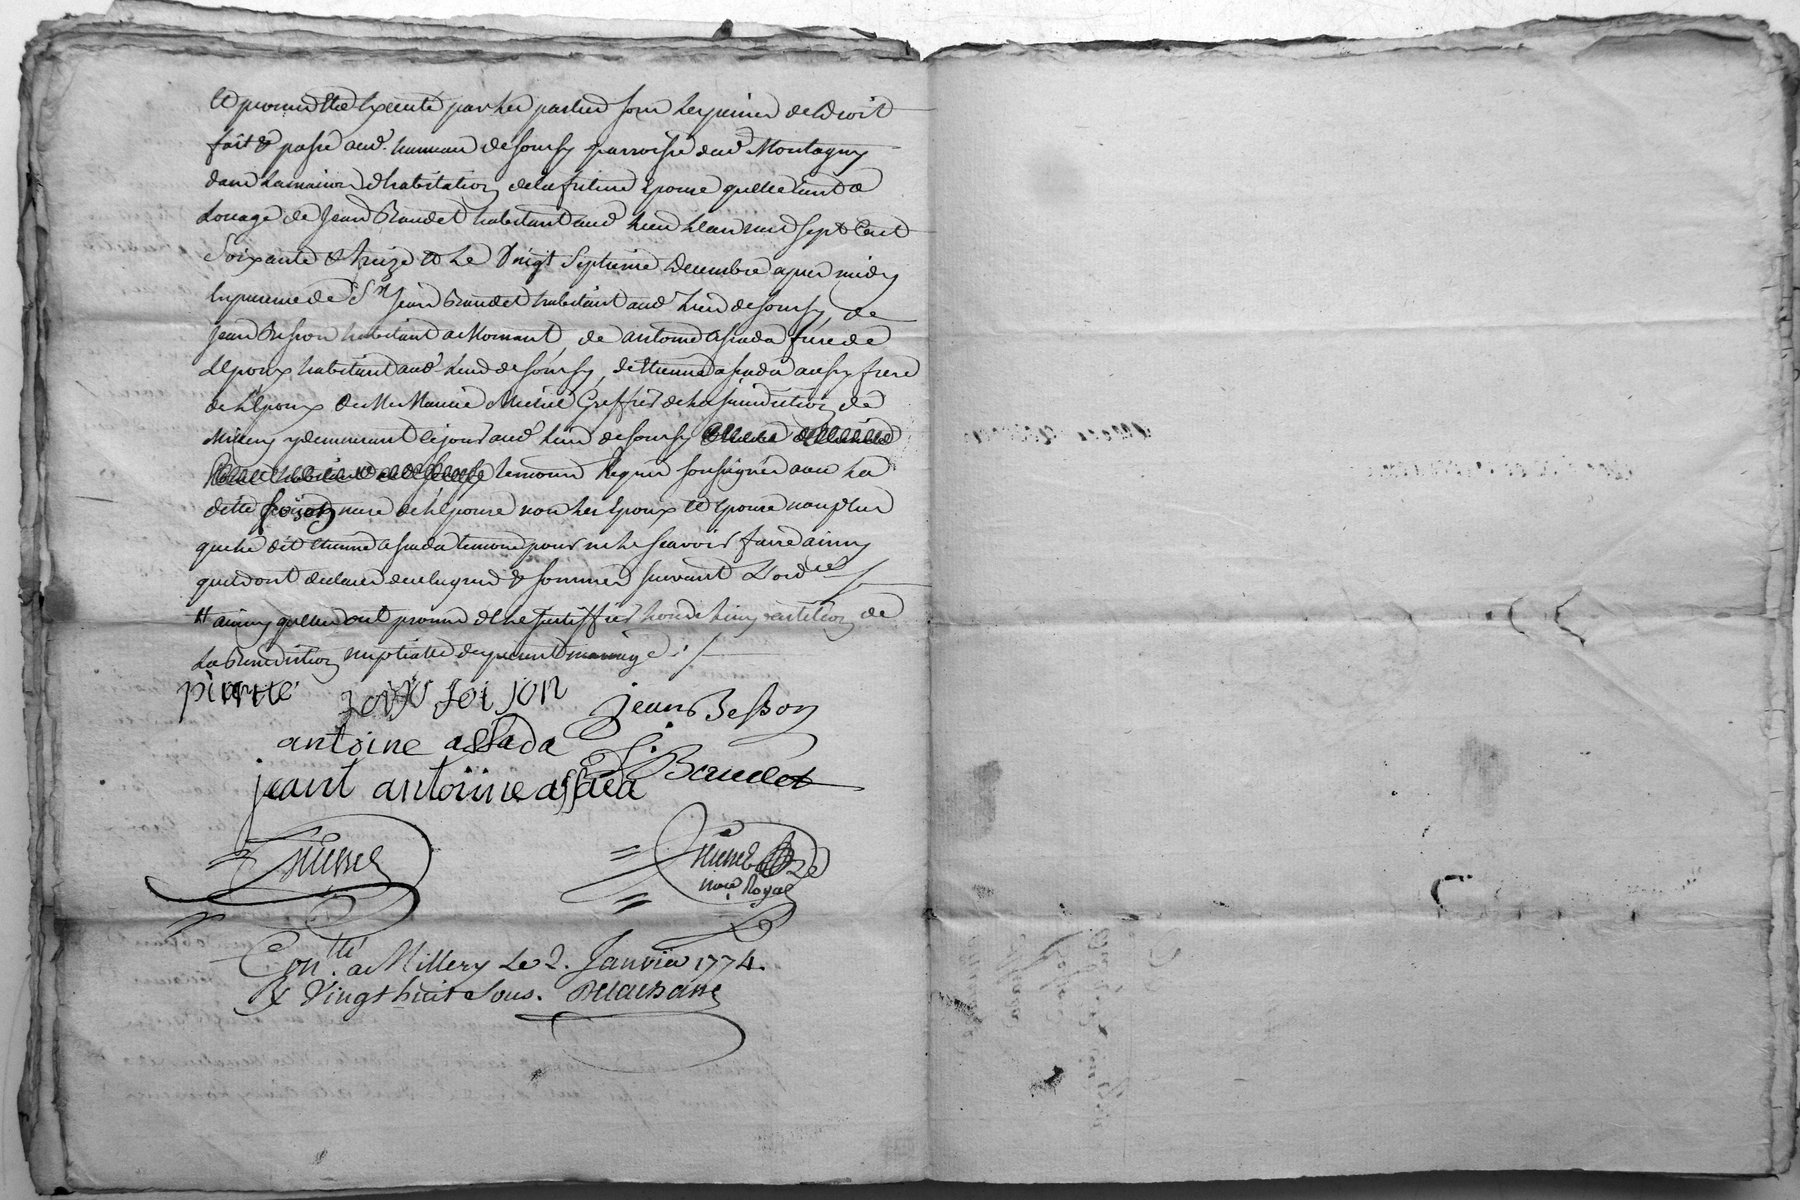 et promis être Executé par les parties sous les peines de Droit
fait & passé aud. hameau de Sourzy parroisse dud Montagny
dans la maison d'habitation de la future Epouse quelle tient a
Louage de Jean Baudet habitant aud lieu L'an mil sept Cent
Soixante & treize & Le Vingt Septieme Decembre apres midy
En presence de Sr. Jean Baudet habitant aud Lieu de Sourzy, de
Jean Besson habitant a Mornant, de antoine assada frere de
L'Epoux habitant aud. Lieu de Sourzy, d'Etienne assada aussy frere
de L'Epoux de Me Maurice Michel Greffier de la jurisdiction de
Millery y demeurant Ce jour aud lieu de Sourzy
temoins Requis soussignés avec La
ditte soison mere de L'Epouse non les Epoux et Epouse non plus
que le dit Etienne assada temoins pour ne le sçavoir faire ainsy
quils ont declaré de ce Enquis & sommés suivant L'ordce
ainsy quelles ont promis de le justiffier Lors de
La Benediction nuptialle du present mariage
pierrette soison Jean Besson
antoine assada
J. Baudet
jeant antoinne assada
not Royal
Contllé. a Millery Le 2. Janvier 1774.
R Vingt huit sous. Delaussanne